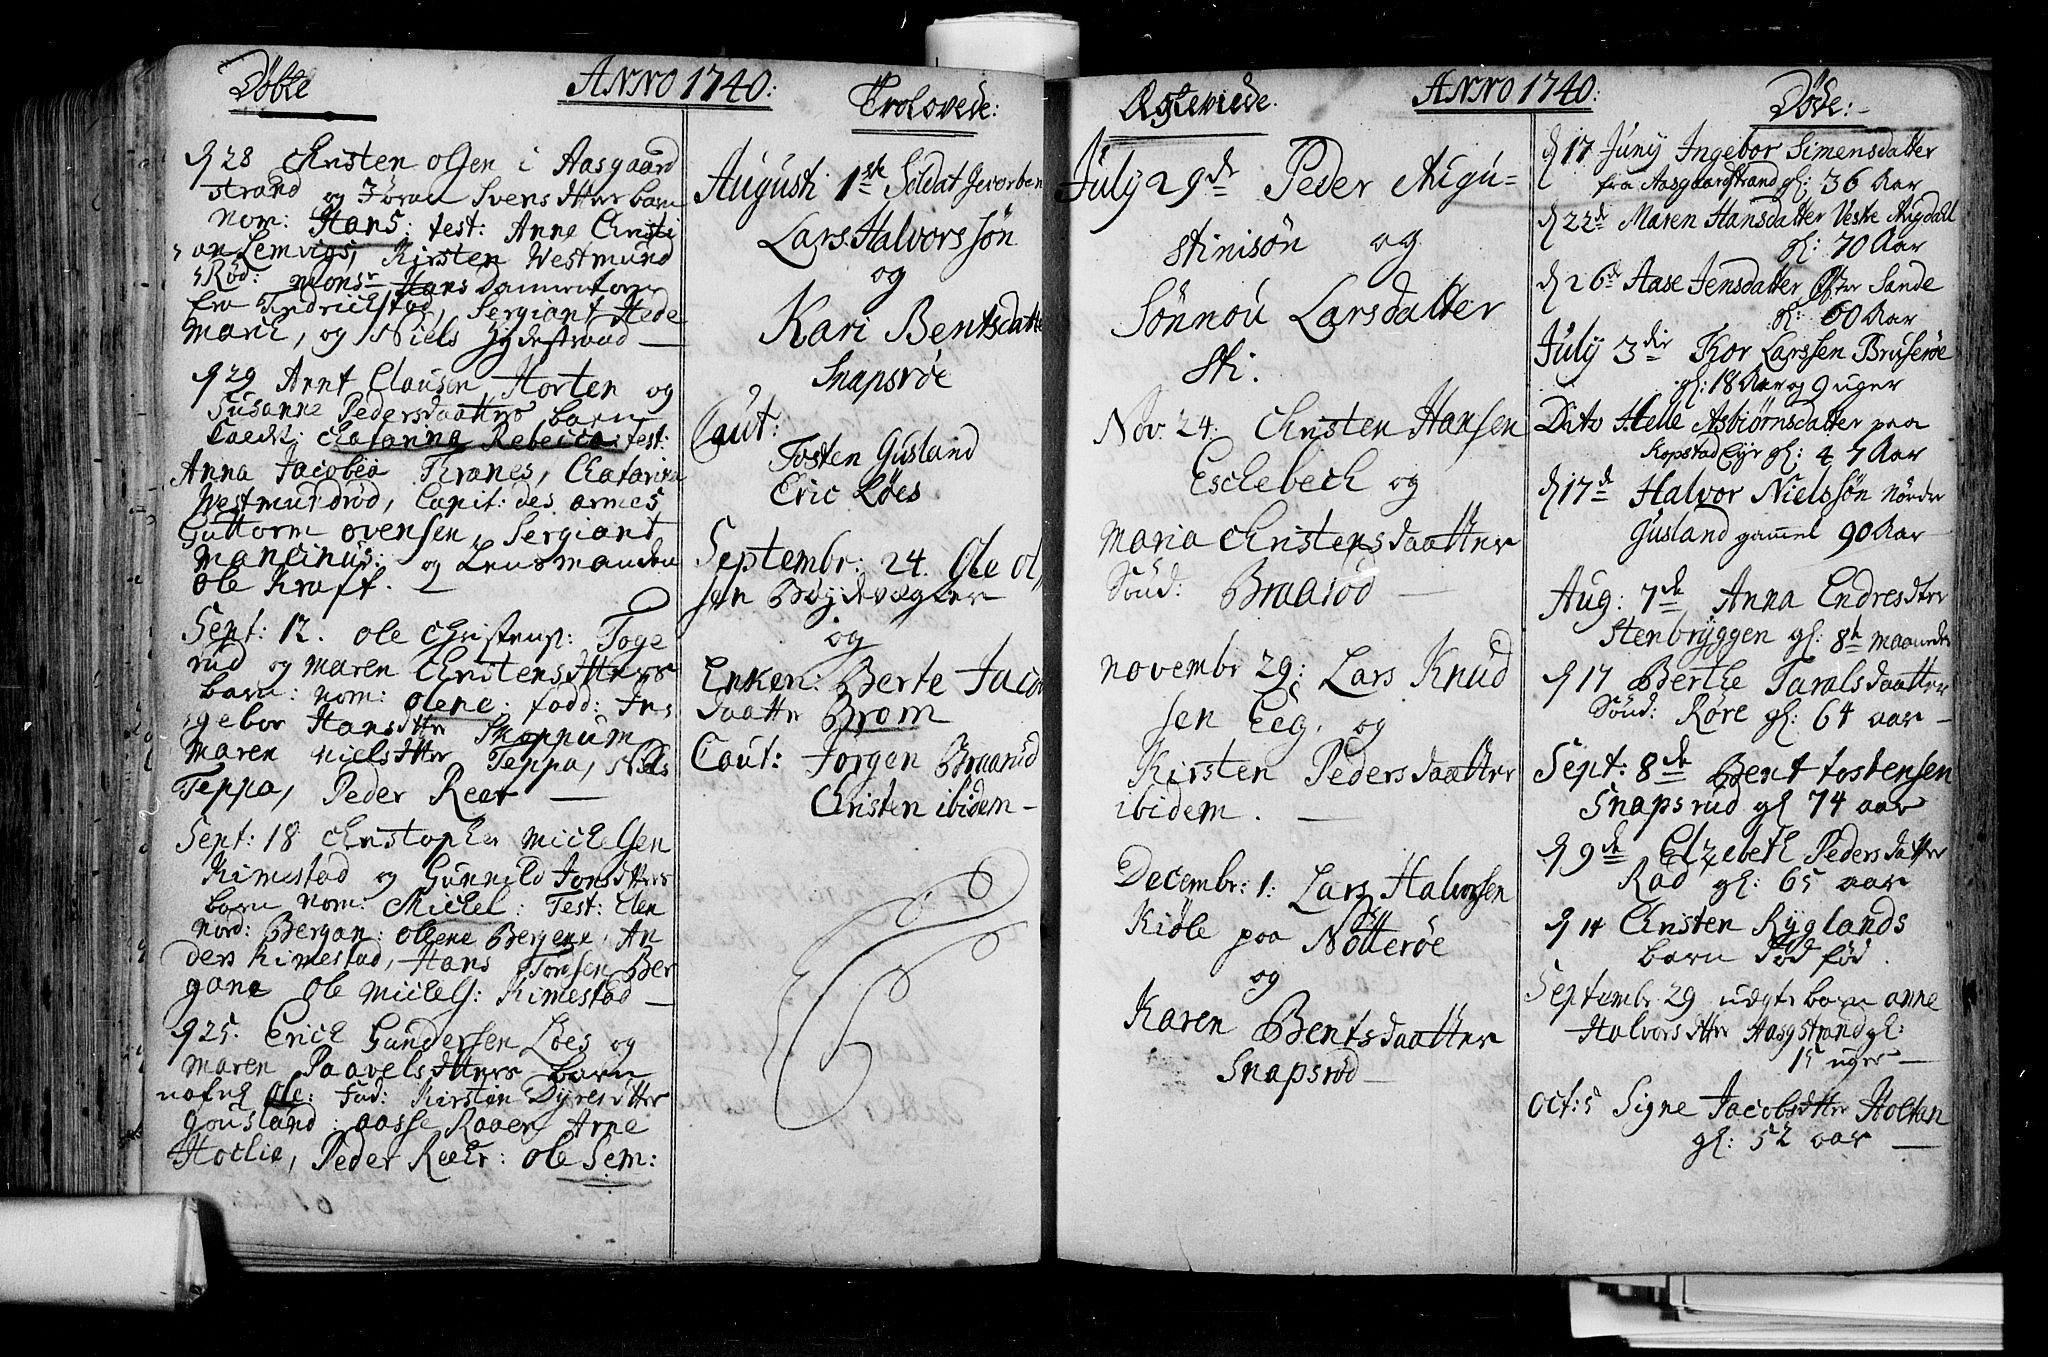 Døbte
Anno 1740:
d 28 Christen Olsen i Aasgaard
strand og Jøran Svensdtter barn
nom: Hans: test: Anne Christi
an Lemvigs, Kirsten Westmund
Rød: Mons: Hans
fra Fridrichstad, Sergiant Hede
mark, og Niels Hydestrand
d 29 Arnt Clausen Horten og
Susanne Pedersdaatters barn
Catarina Rebecca: test:
Anna Jacobea Kranes, Catarina
Westmundrød, Capit: des armes
Guttorm Ovensen, Sergiant
Mancinus: og Lensmanden
Ole Kraft.
Sept: 12. Ole Christens: Toge
rud og Maren Christensdtters
barn: nom: Olene: fadd: In
gebor Hansdtter Skoppum
Maren Nielsdtter Teppa, Niels
Teppa, Peder Reer
Sept: 18 Christopher Michelsen
Kimestad og Gunnild Jonsdtters
barn nom: Michel: Test: Elen
Nord: Bergan: Olene Bergene, An
ders Kimestad, Hans Torsen Ber
gane Ole Michels: Kimestad
d 25. Erich Gundersen Løes og
Maren Paavelsdtters barn
nafnl Ole: Fad: Kirsten Dyresdtter
Gousland: Aasse Raaen Arne
Hotlie, Peder Reer: Ole Sem:
Trolovede:
Augusti 1ste Soldat Gevorben
Lars Halvorssøn
og
Kari Bentsdatte
Snapsrøe
Caut:
Tosten Gusland
Eric Løes
Septembr: 24. Ole Ol
sen Bøydevegler
og
Enken: Berte Jaco
daatter Brom
Caut: Jørgen Braarud
Christen ibidem
Egteviede.
Anno 1740:
July 29de Peder Augu=
stinisøn og
Sønnou Larsdatter
Ski.
Nov: 24: Christen Hansen
Eschebech og
Maria Christensdaatter
Soud: Braarød
Novembr 29: Lars Knud
sen Eeg. og
Kirsten Pedersdaatter
ibidem.
Decembr: 1: Lars Halvorsen
Kiøle paa Nøtterøe
og
Karen Bentsdaatter
Snapsrød
Døde:
d 17 Juny Ingebor Simensdatter
fra Aasgaardstrand gl: 36 Aar
d 22de Maren Hansdatter Vestre Augdahl
gl: 70 Aar
d 26de Aase Jensdatter Øfter Sande
gl: 60 Aar
July 3die Kor Larssen Bruserøe
gl: 18 Aar og 9 uger
Dito Helle Asbiørnsdatter paa
Kopstad Eyr gl: 47 Aar
d 17de Halvor Nielssøn Nordre
Gusland gammel 90 Aar
Aug: 7de Anna Endresdtter
Stenbryggen gl: 8te maaneder
d 17 Berthe Taralsdaatter
Soud: Røre gl: 64 aar
Sept: 8de Bent Tostensen
Snapsrud gl 74 aar
d 9de Elzebeth Pedersdatter
Rød gl: 65 aar
d 14 Christen Ryglands
barn død fød.
Septembr 29 udgt barn Anne
Halvorsdtter Aasgstrand gl:
15 uger
Oct: 5 Signe Jacobsdtter Holtan
gl: 52 aar